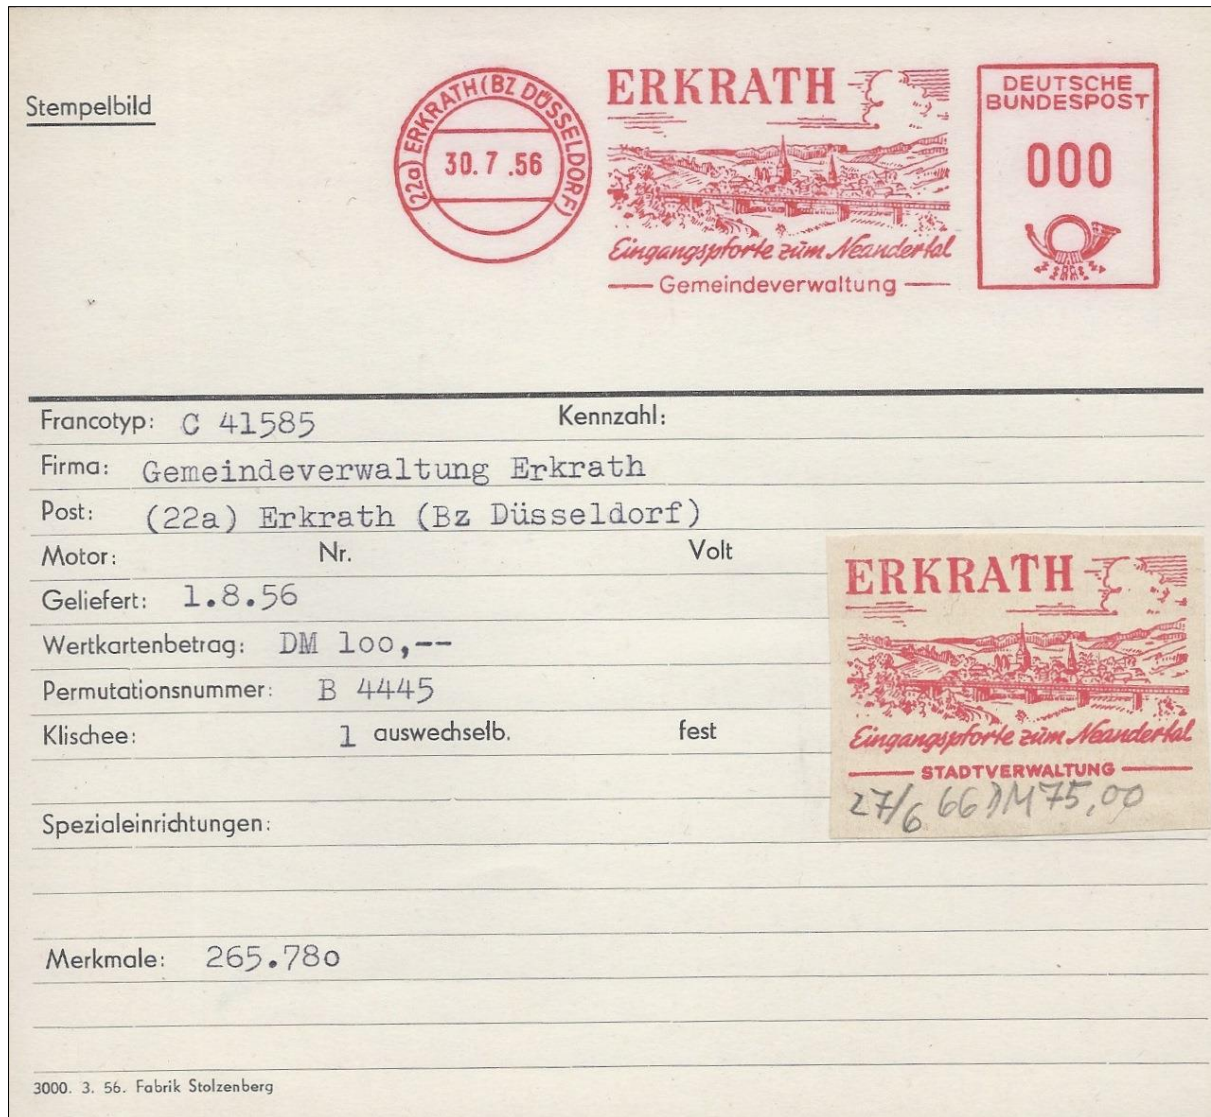 Stempelbild
(22a) ERKRATH (BZ DÜSSELDORF)
30.7.56
ERKRATH
Eingangspforte zum Neandertal
Gemeindeverwaltung
DEUTSCHE
BUNDESPOST
000
Francotyp: C 41585 Kennzahl:
Firma: Gemeindeverwaltung Erkrath
Post: (22a) Erkrath (Bz Düsseldorf)
Motor: Nr. Volt
Geliefert: 1.8.56
Wertkartenbetrag: DM 100,--
Permutationsnummer: B 4445
Klischee: 1 auswechselb. fest
ERKRATH
Eingangspforte zum Neandertal
STADTVERWALTUNG
27/6 66 DM 75,00
Spezialeinrichtungen:
Merkmale: 265.780
3000. 3. 56. Fabrik Stolzenberg